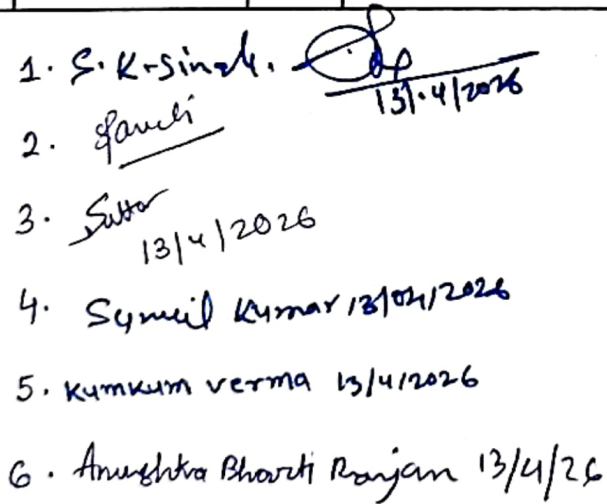 1. S. K. Singh.
13/.4/2026
2.
3. Suttar
13/4/2026
4. Symuil Kumar 13/04/2026
5. Kumkum verma 13/4/2026
6. Anushka Bharti Ranjan 13/4/26